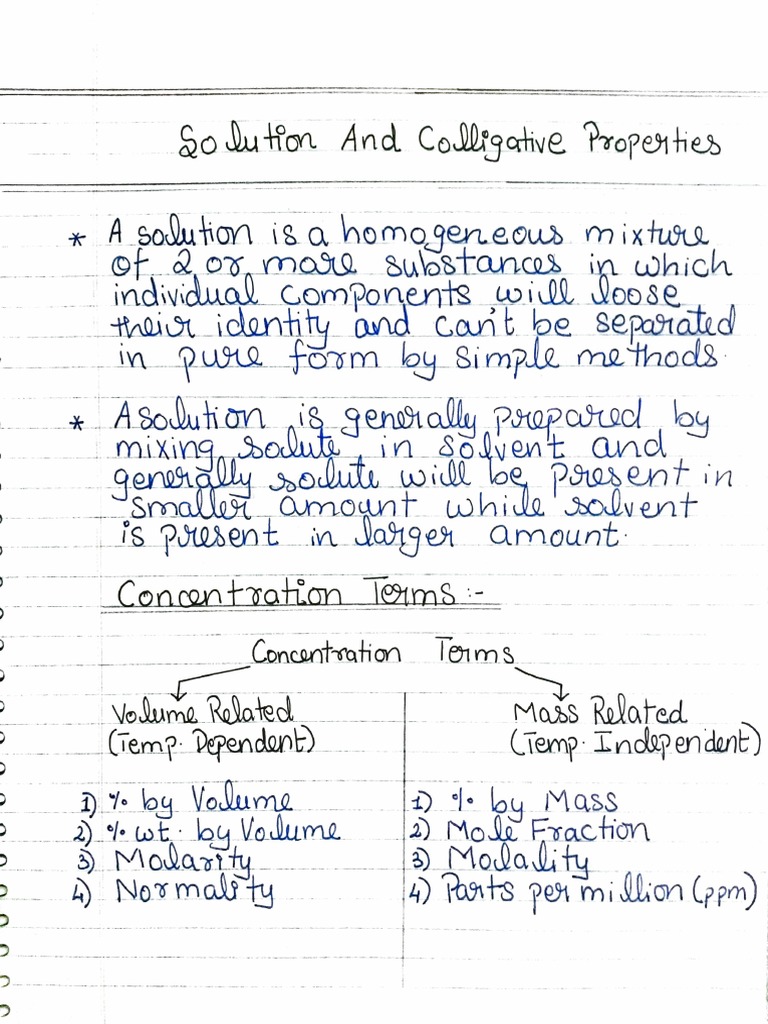 Solution And Colligative Properties
* A solution is a homogeneous mixture
of 2 or more substances in which
individual components will loose
their identity and can't be separated
in pure form by simple methods.
* A solution is generally prepared by
mixing solute in solvent and
generally solute will be present in
smaller amount while solvent
is present in larger amount.
Concentration Terms :-
Concentration Terms
Volume Related
(Temp. Dependent)
1) % by Volume
2) % wt. by Volume
3) Molarity
4) Normality
Mass Related
(Temp. Independent)
1) % by Mass
2) Mole Fraction
3) Molality
4) Parts per million (ppm)